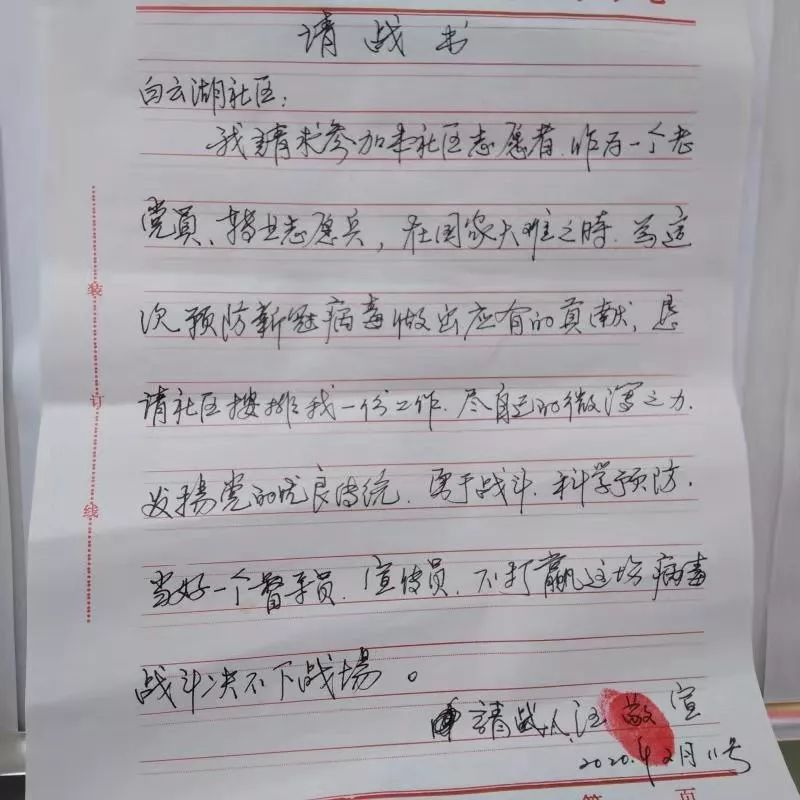 请战书
白云湖社区：
我請求参加本社区志愿者.作为一个老
党員、转业志愿兵，在国家大难之時.为这
次预防新冠病毒做出应有的贡献,恳
请社区按排我一份工作.尽自己的微薄之力.
发揚党的优良传统.勇于战斗.科学预防.
当好一个督导员.宣传员.不打赢这场病毒
战斗决不下战場。
請战人:汪敬宣
2020年2月11号
装
订
线
第 页